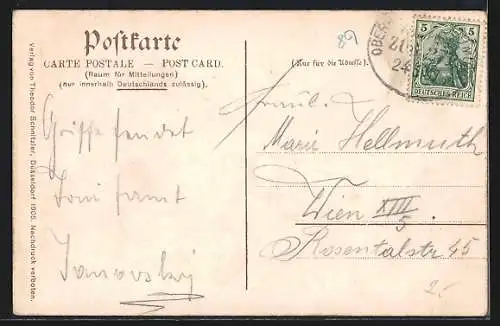 Postkarte
CARTE POSTALE — POST CARD.
(Raum für Mitteilungen)
(nur innerhalb Deutschlands zulässig).
(Nur für die Adresse).
89
OBER
24
5 5
DEUTSCHES REICH
Verlag von Theodor Schnitzler, Düsseldorf 1905. Nachdruck verboten.
Grüsse sendet
Toni samt
Fräul.
Marie Hellmuth
Wien XIII
5
Rosentalstr 45
2.-